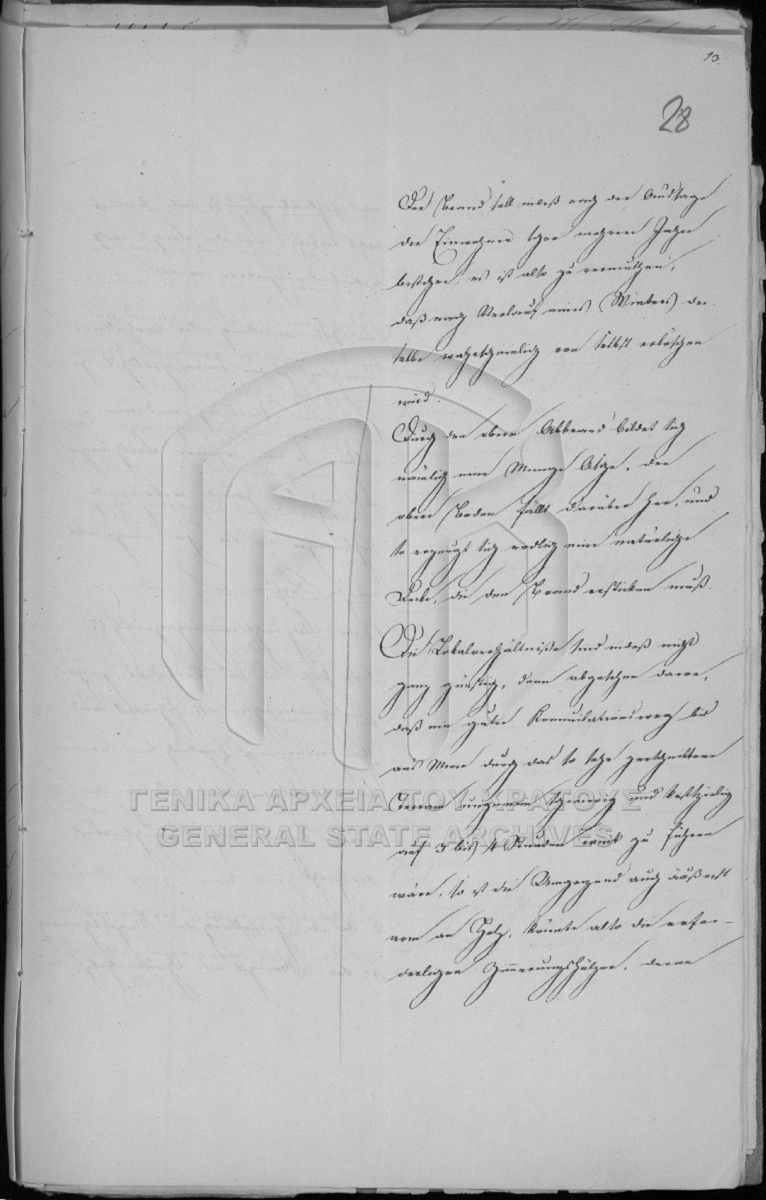 13.
28
Der Brand soll indeß nach der Aussage
der Einwohner schon mehrere Jahre
bestehen, es ist also zu vermuthen,
daß nach Verlauf eines Winters der-
selbe wahrscheinlich von selbst erlöschen
wird.
Durch den obern Abbrand bildet sich
nämlich eine Menge Asche, der
obere Boden fällt darüber her, und
so erzeugt sich endlich eine natürliche
Decke, die den Brand ersticken muß.
Die Lokalverhältniße sind indeß nicht
ganz günstig, denn abgesehen davon,
daß ein guter Kommunikationsweg bis
ans Meer durch das so sehr zerschnittene
Terrain ungemein schwierig und kostspielig
auf 3 bis 4 Stunden weit zu führen
wäre, so ist die Umgegend auch äußerst
arm an Holz, könnte also die erfor-
derlichen Zimmerungshölzer, deren
ΓΕΝΙΚΑ ΑΡΧΕΙΑ ΤΟΥ ΚΡΑΤΟΥΣ
GENERAL STATE ARCHIVES